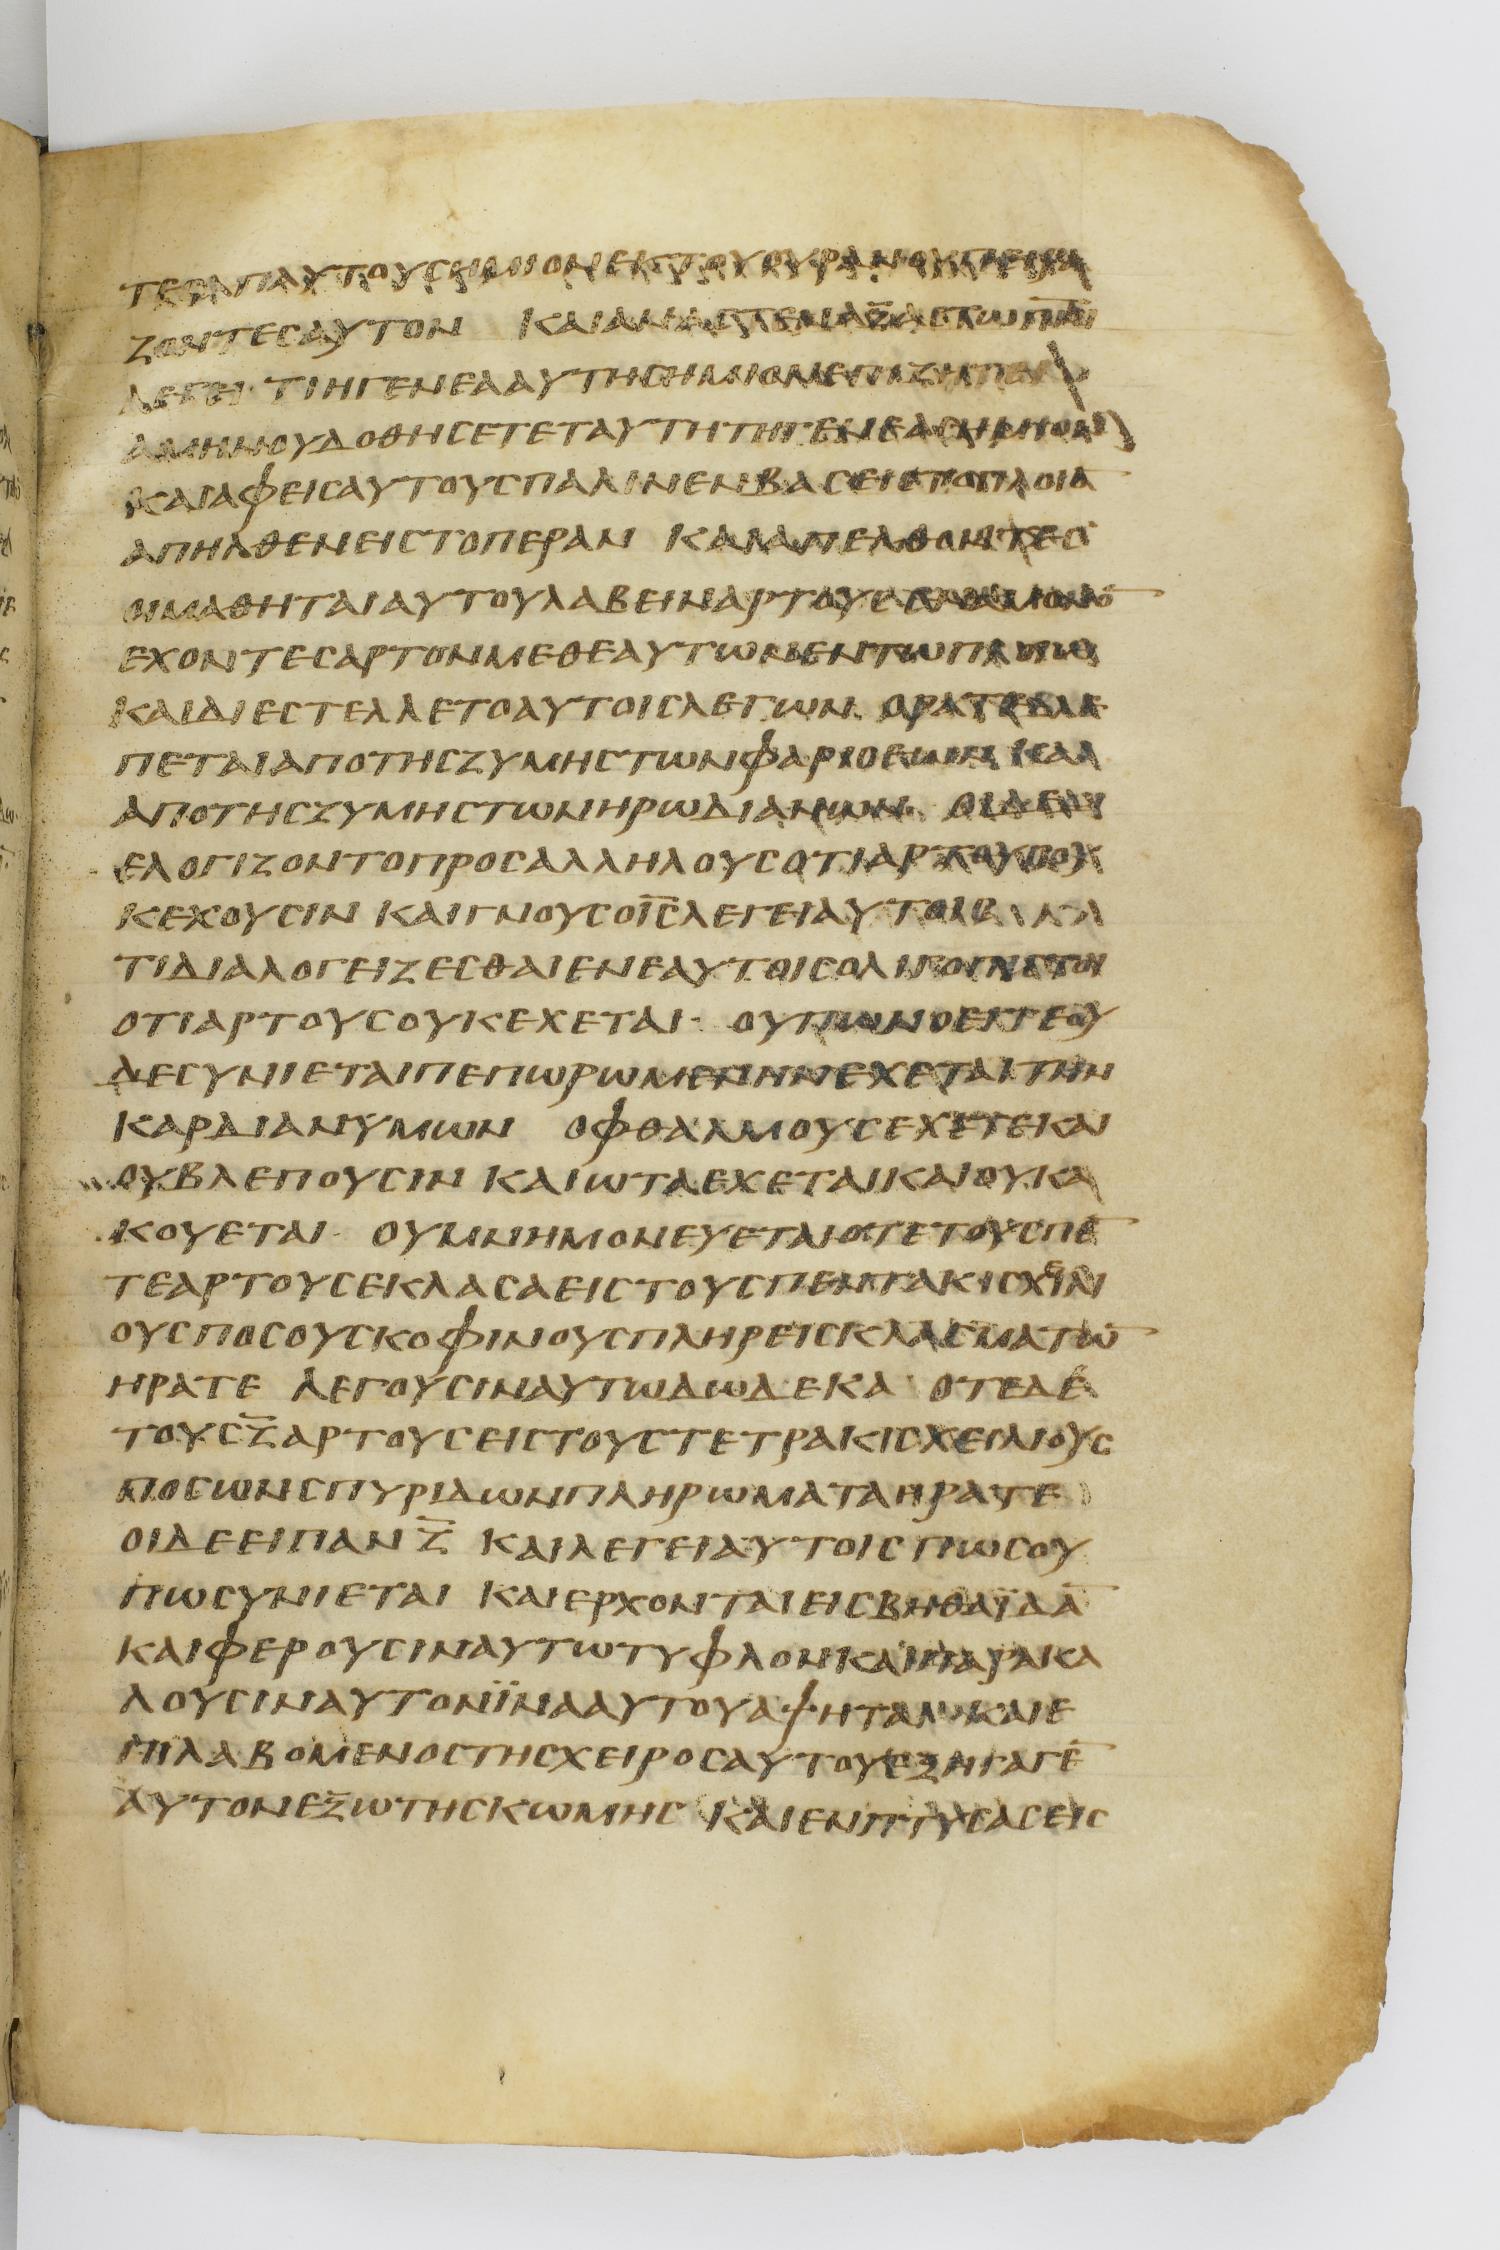 ΤΕϹΑΠΑΥΤΟΥϹΗΜΙΟΝΕΚΤΟΥΟΥΡΑΝΟΥΠΕΙΡΑ
ΖΟΝΤΕϹΑΥΤΟΝ ΚΑΙΑΝΑϹΤΕΝΑΞΑϹΤΩΠΝ̅Ι̅
ΛΕΓΕΙ· ΤΙΗΓΕΝΕΑΑΥΤΗϹΗΜΙΟΝΕΠΙΖΗΤΕΙ
ΑΜΗΝΟΥΔΟΘΗϹΕΤΕΤΑΥΤΗΤΗΓΕΝΕΑϹΗΜΙΟΝ
ΚΑΙΑΦΕΙϹΑΥΤΟΥϹΠΑΛΙΝΕΝΒΑϹΕΙϹΤΟΠΛΟΙΟ̅
ΑΠΗΛΘΕΝΕΙϹΤΟΠΕΡΑΝ ΚΑΙΑΠΕΛΘΟΝΤΕϹ
ΟΙΜΑΘΗΤΑΙΑΥΤΟΥΛΑΒΕΙΝΑΡΤΟΥϹ ΜΟΝΟ̅
ΕΧΟΝΤΕϹΑΡΤΟΝΜΕΘΕΑΥΤΩΝΕΝΤΩΠΛΟΙΩ
ΚΑΙΔΙΕϹΤΕΛΛΕΤΟΑΥΤΟΙϹΛΕΓΩΝ ΟΡΑΤΕΒΛΕ
ΠΕΤΑΙΑΠΟΤΗϹΖΥΜΗϹΤΩΝΦΑΡΙϹΕΩΝΚΑΙ
ΑΠΟΤΗϹΖΥΜΗϹΤΩΝΗΡΩΔΙΑΝΩΝ ΟΙΔΕΔΙ
ΕΛΟΓΙΖΟΝΤΟΠΡΟϹΑΛΛΗΛΟΥϹΟΤΙΑΡΤΟΥϹΟΥ
ΚΕΧΟΥϹΙΝ ΚΑΙΓΝΟΥϹΟΙ̅Ϲ̅ΛΕΓΕΙΑΥΤΟΙϹ
ΤΙΔΙΑΛΟΓΕΙΖΕϹΘΑΙΕΝΕΑΥΤΟΙϹΟΛΙΓΟΠΙϹΤΟΙ
ΟΤΙΑΡΤΟΥϹΟΥΚΕΧΕΤΑΙ· ΟΥΠΩΝΟΕΙΤΕΟΥ
ΔΕϹΥΝΙΕΤΑΙΠΕΠΩΡΩΜΕΝΗΝΕΧΕΤΑΙΤΗΝ
ΚΑΡΔΙΑΝΥΜΩΝ ΟΦΘΑΛΜΟΥϹΕΧΕΤΕΚΑΙ
ΟΥΒΛΕΠΟΥϹΙΝ ΚΑΙΩΤΑΕΧΕΤΑΙΚΑΙΟΥΚΑ
ΚΟΥΕΤΑΙ· ΟΥΜΝΗΜΟΝΕΥΕΤΑΙΟΤΕΤΟΥϹΠΕ̅
ΤΕΑΡΤΟΥϹΕΚΛΑϹΑΕΙϹΤΟΥϹΠΕΝΤΑΚΙϹΧΕΙΛΙ
ΟΥϹΠΟϹΟΥϹΚΟΦΙΝΟΥϹΠΛΗΡΕΙϹΚΛΑϹΜΑΤΩ̅
ΗΡΑΤΕ ΛΕΓΟΥϹΙΝΑΥΤΩΔΩΔΕΚΑ ΟΤΕΔΕ
ΤΟΥϹΖ̅ΑΡΤΟΥϹΕΙϹΤΟΥϹΤΕΤΡΑΚΙϹΧΕΙΛΙΟΥϹ
ΠΟϹΩΝϹΠΥΡΙΔΩΝΠΛΗΡΩΜΑΤΑΗΡΑΤΕ
ΟΙΔΕΕΙΠΑΝΖ̅ ΚΑΙΛΕΓΕΙΑΥΤΟΙϹΠΩϹΟΥ
ΠΩϹΥΝΙΕΤΑΙ ΚΑΙΕΡΧΟΝΤΑΙΕΙϹΒΗΘϹΑΪΔΑ̅
ΚΑΙΦΕΡΟΥϹΙΝΑΥΤΩΤΥΦΛΟΝΚΑΙΠΑΡΑΚΑ
ΛΟΥϹΙΝΑΥΤΟΝΪΝΑΑΥΤΟΥΑΨΗΤΑΙ ΚΑΙΕ
ΠΙΛΑΒΟΜΕΝΟϹΤΗϹΧΕΙΡΟϹΑΥΤΟΥΕΞΗΓΑΓΕ̅
ΑΥΤΟΝΕΞΩΤΗϹΚΩΜΗϹ ΚΑΙΕΝΠΤΥϹΑϹΕΙϹ